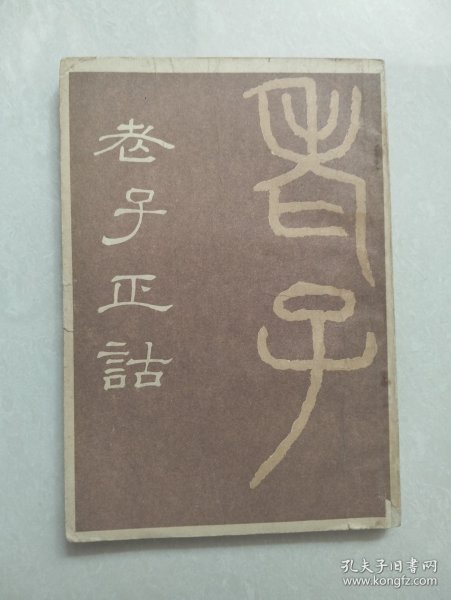 老子
老子正詁
孔夫子旧书网
www.kongfz.com